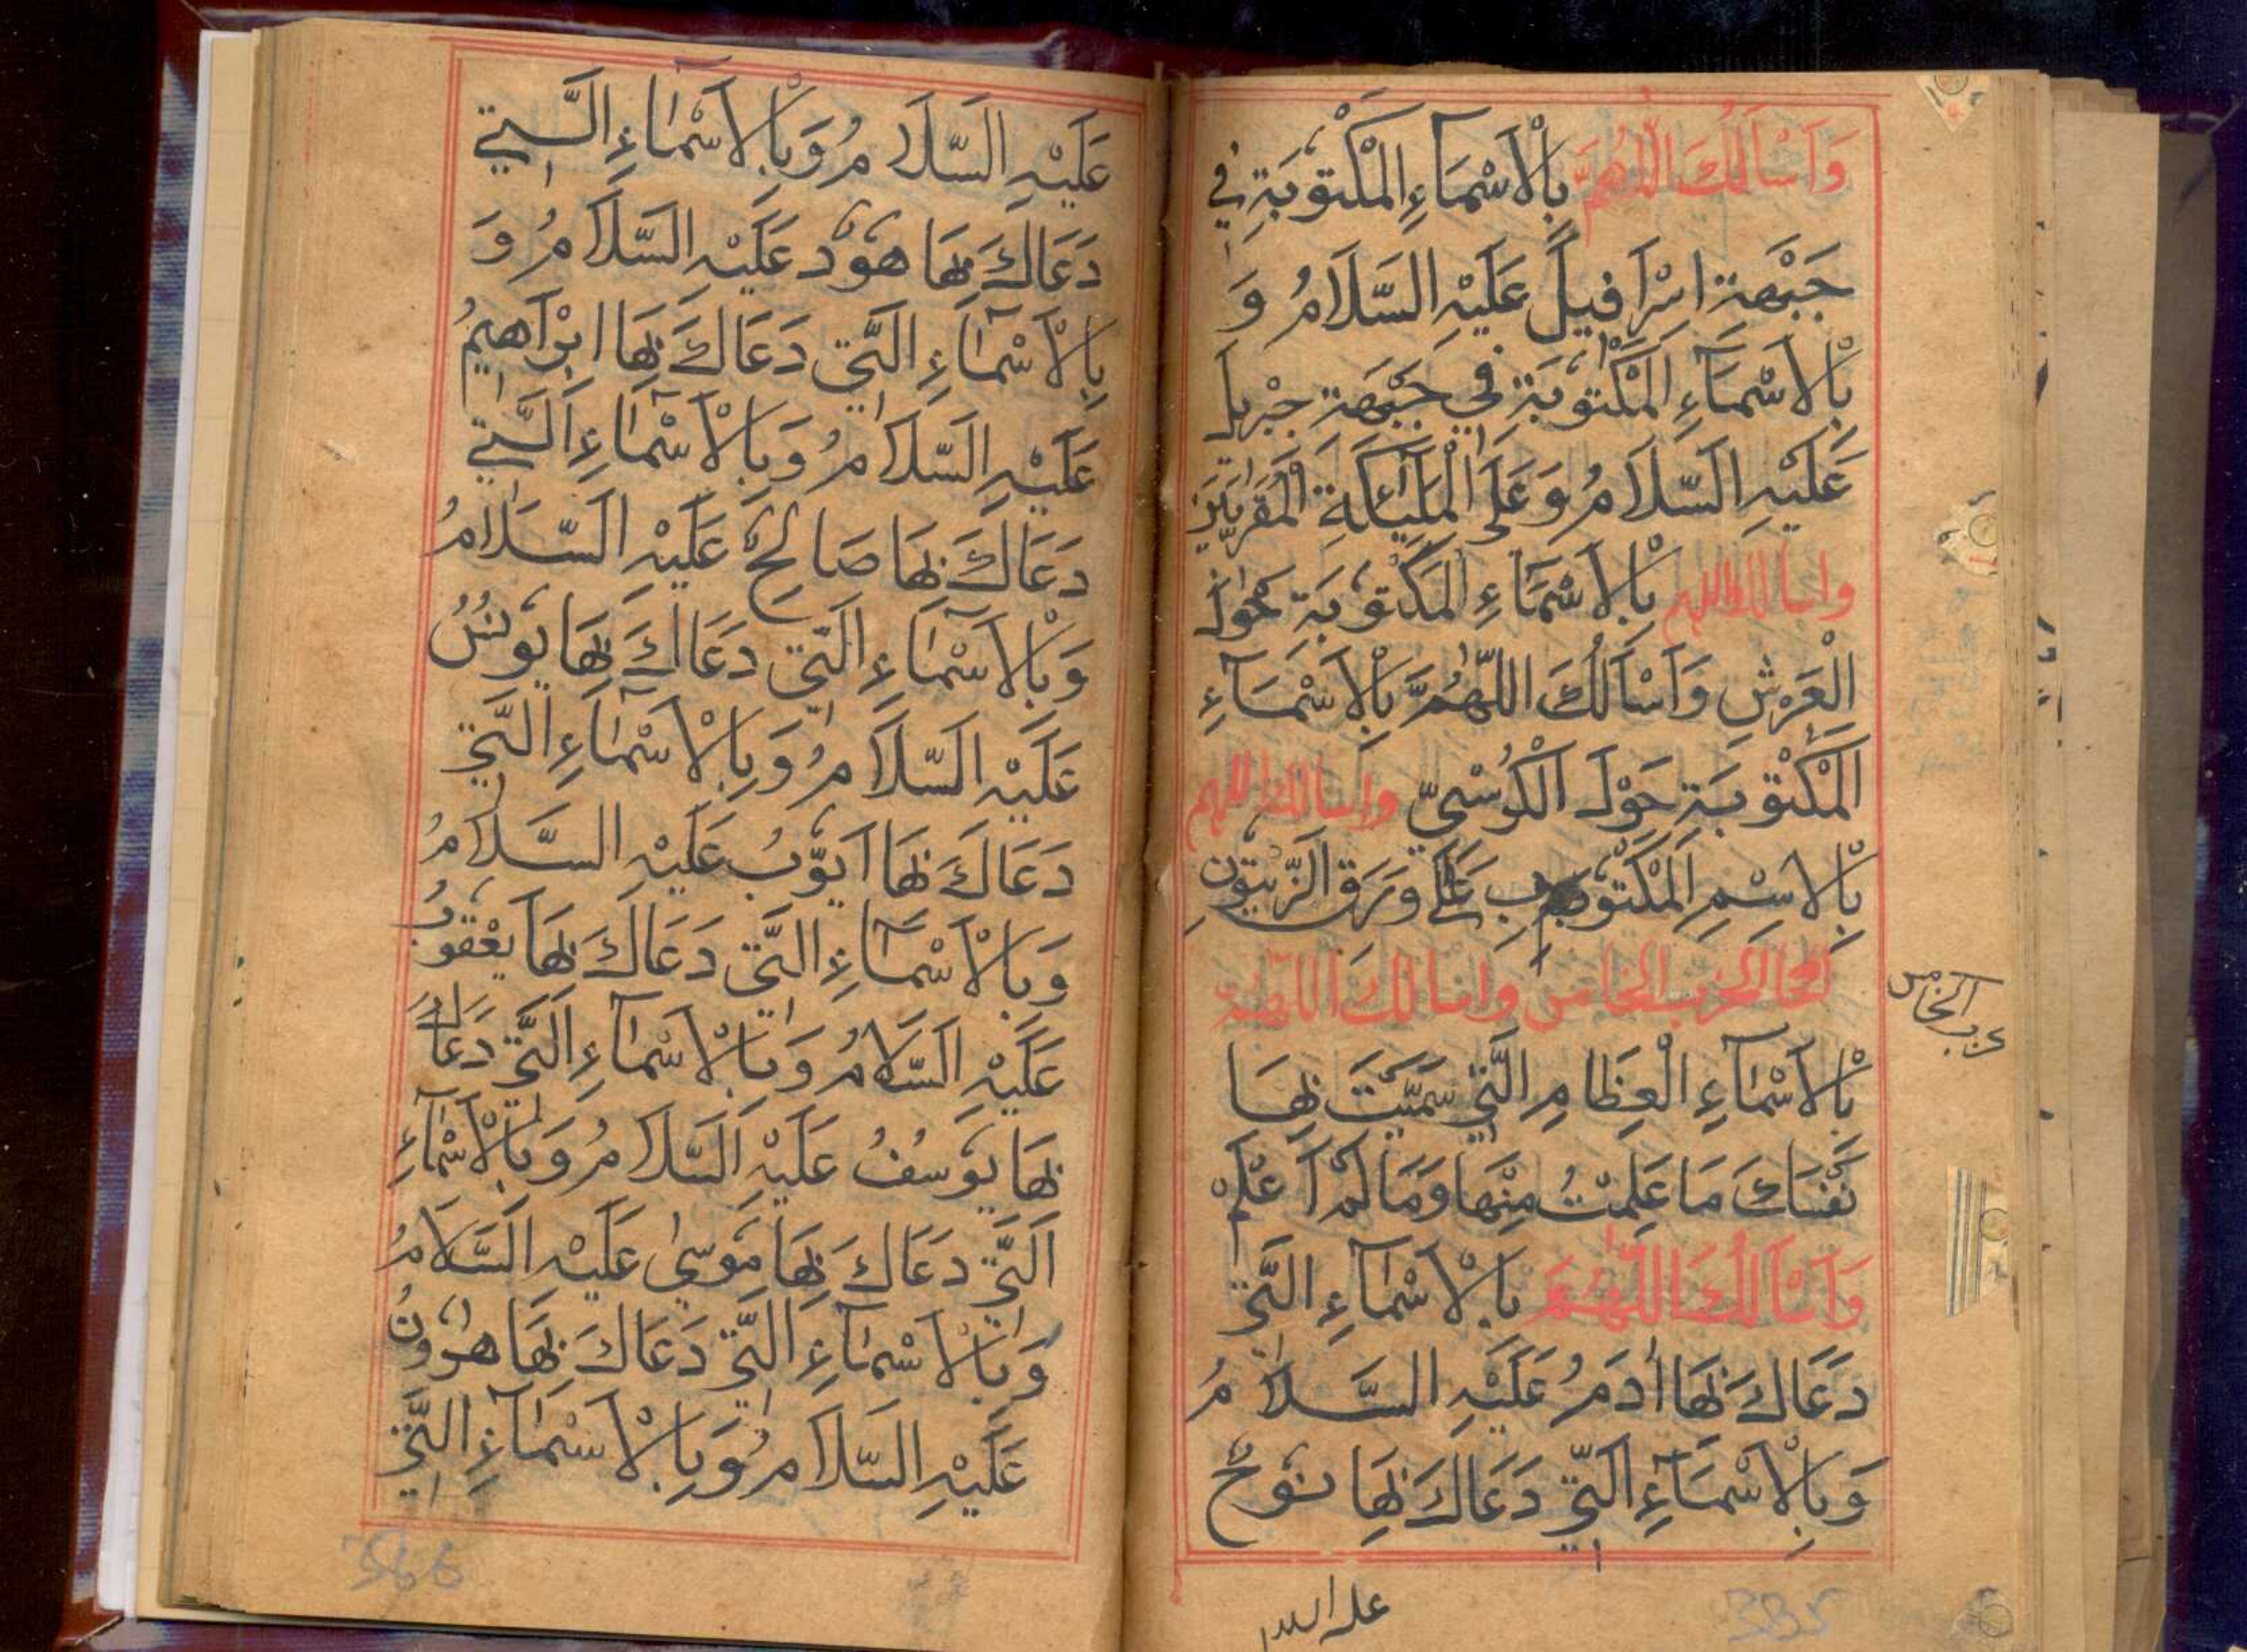 وَاَسْاَلُكَ اللّٰهُمَّ بِالْاَسْمَآءِ الْمَكْتُوْبَةِ فِي
جَبْهَةِ اِسْرَافِيْلَ عَلَيْهِ السَّلَامُ وَ
بِالْاَسْمَآءِ الْمَكْتُوْبَةِ فِي جَبْهَةِ جِبْرِيل
عَلَيْهِ السَّلَامُ وَعَلَى الْمَلٰٓئِكَةِ الْمُقَرَّبِيْنَ
واسالك اللهم بِالْاَسْمَآءِ الْمَكْتُوْبَةِ حَوْلَ
الْعَرْشِ وَاَسْاَلُكَ اللّٰهُمَّ بِالْاَسْمَآءِ
الْمَكْتُوْبَةِ حَوْلَ الْكُرْسِيِّ واسالك اللهم
بِالْاِسْمِ الْمَكْتُوْبِ عَلٰى وَرَقِ الزَّيْتُوْنِ
الحزب الخامس واسالك اللهم
بِالْاَسْمَآءِ الْعِظَامِ الَّتِي سَمَّيْتَ بِهَا
نَفْسَكَ مَا عَلِمْتُ مِنْهَا وَمَا لَمْ اَعْلَمْ
وَاَسْاَلُكَ اللّٰهُمَّ بِالْاَسْمَآءِ الَّتِي
دَعَاكَ بِهَا اٰدَمُ عَلَيْهِ السَّلَامُ
وَبِالْاَسْمَآءِ الَّتِي دَعَاكَ بِهَا نُوْحٌ
عليه السلا
حزب الخامس
335
عَلَيْهِ السَّلَامُ وَبِالْاَسْمَآءِ الَّتِي
دَعَاكَ بِهَا هُوْدٌ عَلَيْهِ السَّلَامُ وَ
بِالْاَسْمَآءِ الَّتِي دَعَاكَ بِهَا اِبْرَاهِيْمُ
عَلَيْهِ السَّلَامُ وَبِالْاَسْمَآءِ الَّتِي
دَعَاكَ بِهَا صَالِحٌ عَلَيْهِ السَّلَامُ
وَبِالْاَسْمَآءِ الَّتِي دَعَاكَ بِهَا يُوْنُسُ
عَلَيْهِ السَّلَامُ وَبِالْاَسْمَآءِ الَّتِي
دَعَاكَ بِهَا اَيُّوْبُ عَلَيْهِ السَّلَامُ
وَبِالْاَسْمَآءِ الَّتِي دَعَاكَ بِهَا يَعْقُوْبُ
عَلَيْهِ السَّلَامُ وَبِالْاَسْمَآءِ الَّتِي دَعَاكَ
بِهَا يُوْسُفُ عَلَيْهِ السَّلَامُ وَبِالْاَسْمَآءِ
الَّتِي دَعَاكَ بِهَا مُوْسٰى عَلَيْهِ السَّلَامُ
وَبِالْاَسْمَآءِ الَّتِي دَعَاكَ بِهَا هٰرُوْنُ
عَلَيْهِ السَّلَامُ وَبِالْاَسْمَآءِ الَّتِي